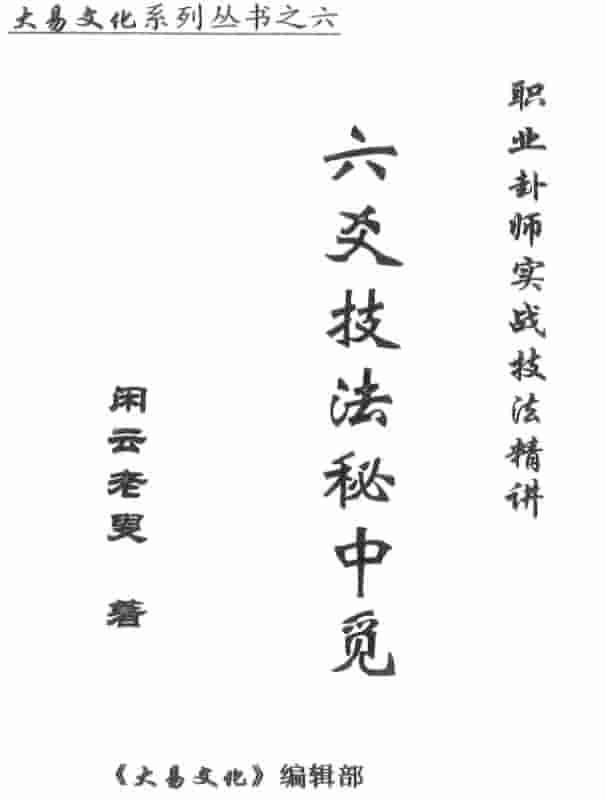 大易文化系列丛书之六
职业卦师实战技法精讲
六爻技法秘中觅
闲云老叟 著
《大易文化》编辑部